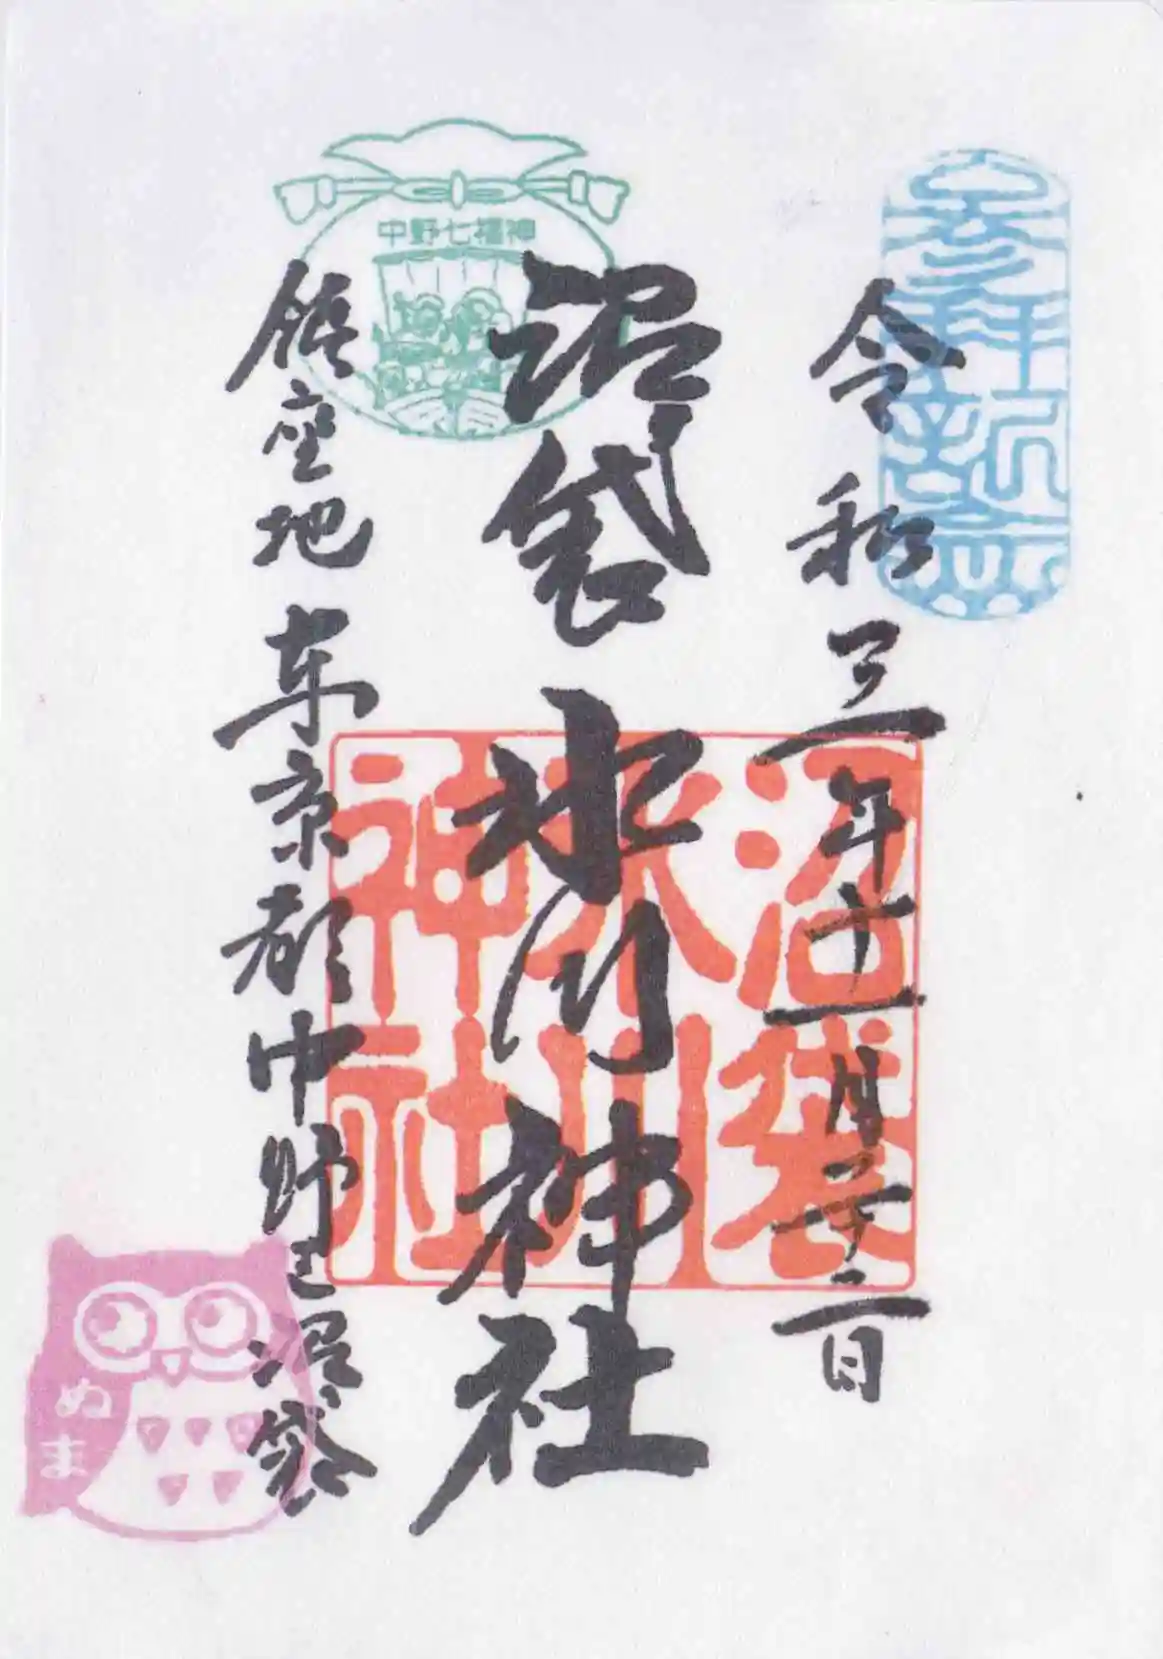 参拝記念
令和三年十一月二十二日
中野七福神
沼袋氷川神社
沼袋
氷川
神社
鎮座地 東京都中野区沼袋
ぬま